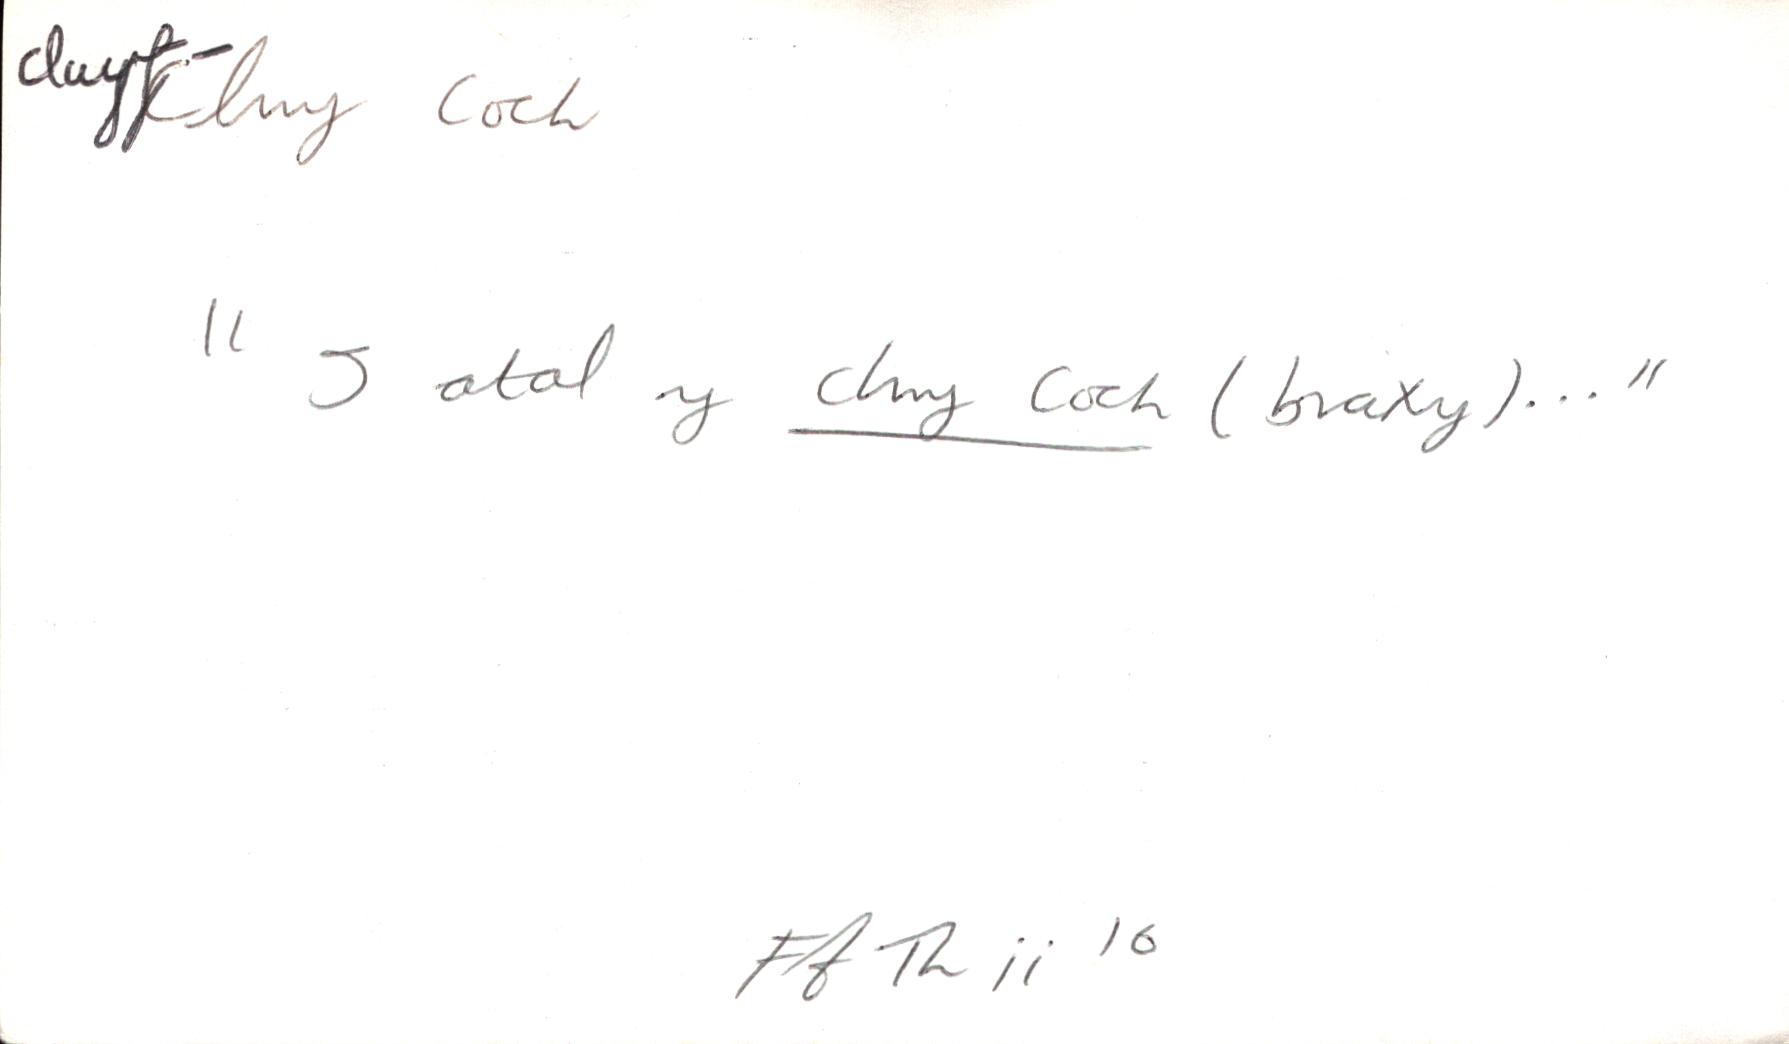 clwyf:- Clwy Coch
" I atal y clwy coch (braxy)..."
Ff Th ii 16